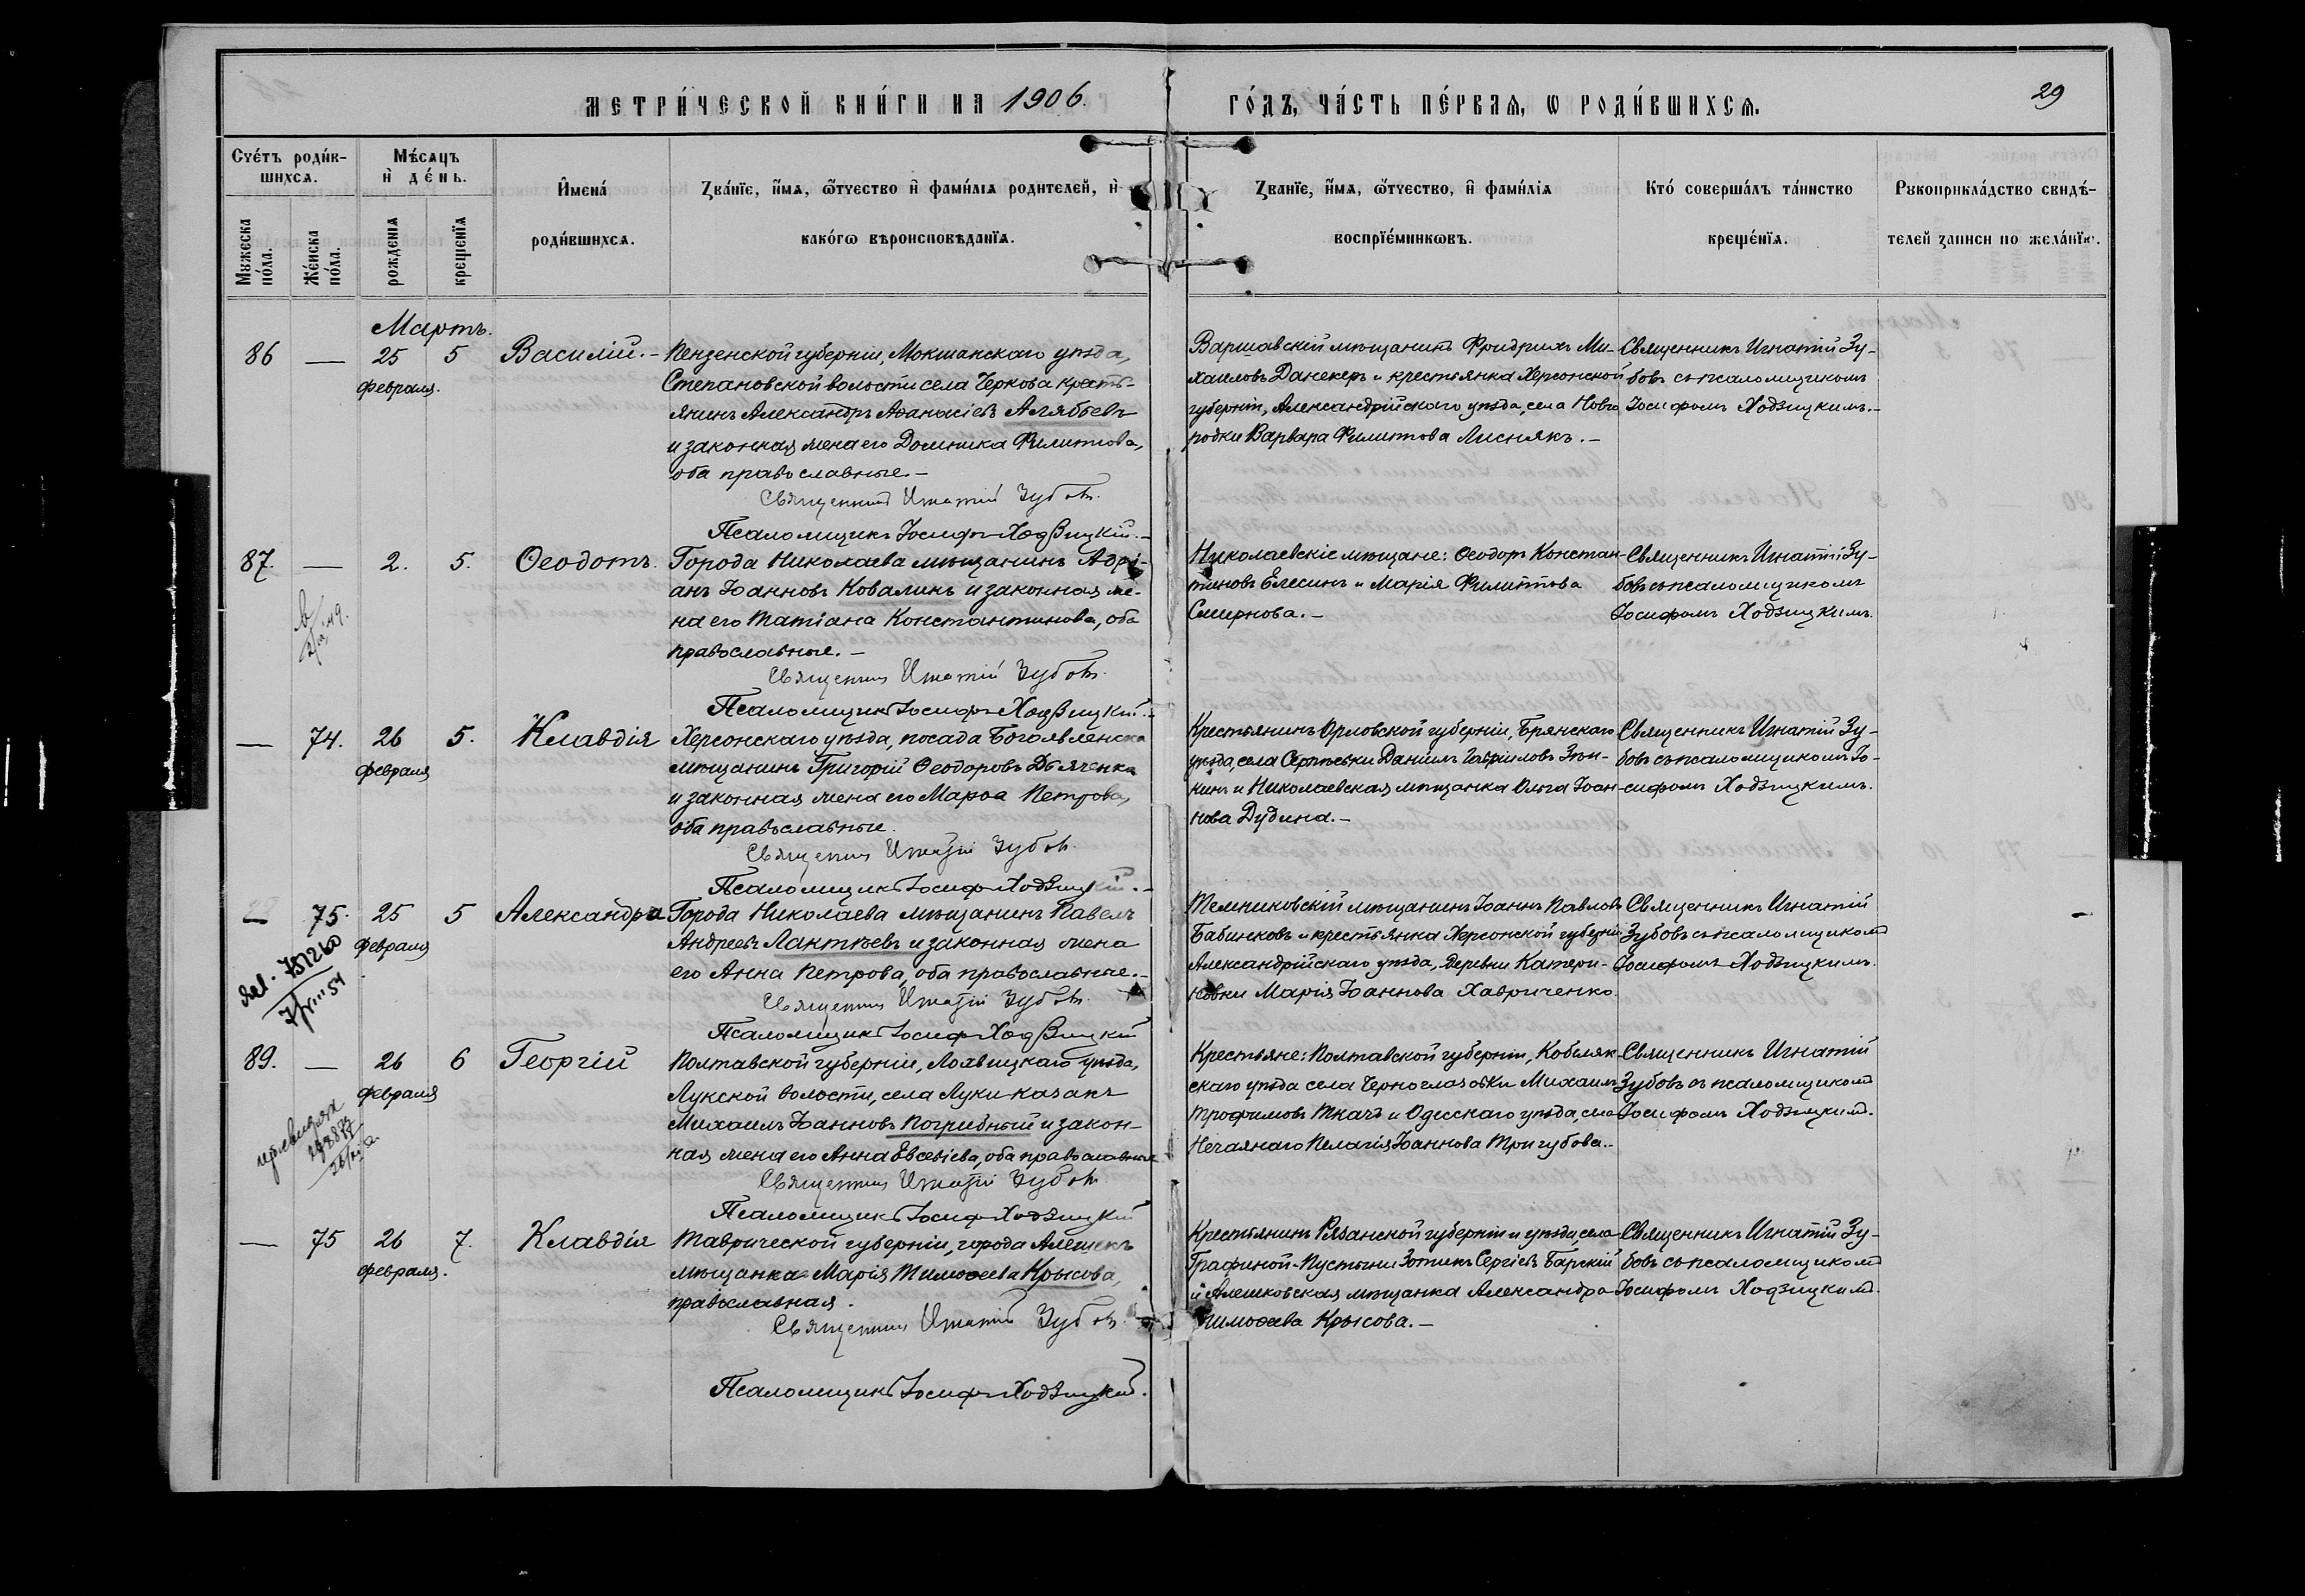 МЕТРИ́ЧЕСКОЙ КНИ́ГИ НА 1906.
ГО́ДЪ, ЧА́СТЬ ПЕ́РВАЯ, Ѡ РОДИ́ВШИХСЯ.
29
Сче́тъ роди́в-
шихся.
Мѣ́сяцъ
и҆ де́нь.
И҆мена́
роди́вшихся.
Зва́нїе, и҆́мя, ѻ҆́тчество и҆ фами́лія родителей, и҆
како́гѡ вѣроисповѣданїя.
Званїе, и҆́мя, ѻ҆́тчество, и҆ фами́лія
воспріе́мникѡвъ.
Кто́ соверша́лъ та́инство
креще́нїя.
Рукоприкла́дство свидѣ́-
телей записи по жела́нїю.
Мужеска
по́ла.
Же́нска
по́ла.
рожденїя
крещенїя
Мартъ.
86 — 25 5 Василій. –
февраля.
Пензенской губерніи, Мокшанскаго уѣзда,
Степановской волости села Чернова кресть-
янинъ Александръ Аѳанасіевъ Алябьевъ
и законная жена его Домника Филиппова,
оба православные. –
Священникъ Игнатій Зубовъ.
Псаломщикъ Іосифъ Ходзицкій. –
Варшавскій мѣщанинъ Фридрихъ Ми-
хаиловъ Данекеръ и крестьянка Херсонской
губерніи, Александрійскаго уѣзда, села Новго
родки Варвара Филиппова Лиснякъ. –
Священникъ Игнатій Зу-
бовъ съ псаломщикомъ
Іосифомъ Ходзицкимъ. –
87. — 2. 5. Ѳеодотъ.
Города Николаева мѣщанинъ Адрі-
анъ Іоанновъ Ковалинъ и законная же-
на его Татіана Константинова, оба
православные. –
Священникъ Игнатій Зубовъ.
Псаломщикъ Іосифъ Ходзицкій. –
Николаевскіе мѣщане: Ѳеодоръ Констан-
тиновъ Елесинъ и Марія Филиппова
Смирнова. –
Священникъ Игнатій Зу-
бовъ съ псаломщикомъ
Іосифомъ Ходзицкимъ.
— 74. 26 5. Клавдія
февраля
Херсонскаго уѣзда, посада Богоявленска
мѣщанинъ Григорій Ѳеодоровъ Дьяченка
и законная жена его Марѳа Петрова,
оба православные.
Священникъ Игнатій Зубовъ.
Псаломщикъ Іосифъ Ходзицкій. –
Крестьянинъ Орловской губерніи, Брянскаго
уѣзда, села Даніилъ Гавріиловъ
и Николаевская мѣщанка Ольга Іоан-
нова Дудина. –
Священникъ Игнатій Зу-
бовъ съ псаломщикомъ Іо-
сифомъ Ходзицкимъ.
— 75. 25 5 Александра
февраля
751260
Города Николаева мѣщанинъ Павелъ
Андреевъ Лантѣевъ и законная жена
его Анна Петрова, оба православные. –
Священникъ Игнатій Зубовъ.
Псаломщикъ Іосифъ Ходзицкій
Темниковскій мѣщанинъ Іоаннъ Павловъ
Бабинковъ и крестьянка Херсонской губерніи
Александрійскаго уѣзда, деревни Катери-
новки Марія Іоаннова Хавриченко.
Священникъ Игнатій
Зубовъ съ псаломщикомъ
Іосифомъ Ходзицкимъ.
89. — 26 6 Георгій
февраля
Полтавской губерніи, Лохвицкаго уѣзда,
Лукской волости, села Луки казакъ
Михаилъ Іоанновъ Погрибный и закон-
ная жена его Анна Евсевіева, оба православные
Священникъ Игнатій Зубовъ.
Псаломщикъ Іосифъ Ходзицкій
Крестьяне: Полтавской губерніи, Кобеляк-
скаго уѣзда села Черноглазовки Михаилъ
Трофимовъ Ткачъ и Одесскаго уѣзда, села
Нечаянаго Пелагія Іоаннова Тригубова. –
Священникъ Игнатій
Зубовъ съ псаломщикомъ
Іосифомъ Ходзицкимъ.
— 75 26 7. Клавдія
февраля.
Таврической губерніи, города Алешекъ
мѣщанка Марія Тимоѳеева Крысова,
православная.
Священникъ Игнатій Зубовъ.
Псаломщикъ Іосифъ Ходзицкій.
Крестьянинъ Рязанской губерніи и уѣзда, села
Графиной-Пустыни Зотикъ Сергіевъ Барскій
и Алешковская мѣщанка Александра
Тимоѳеева Крысова. –
Священникъ Игнатій Зу-
бовъ съ псаломщикомъ
Іосифомъ Ходзицкимъ.